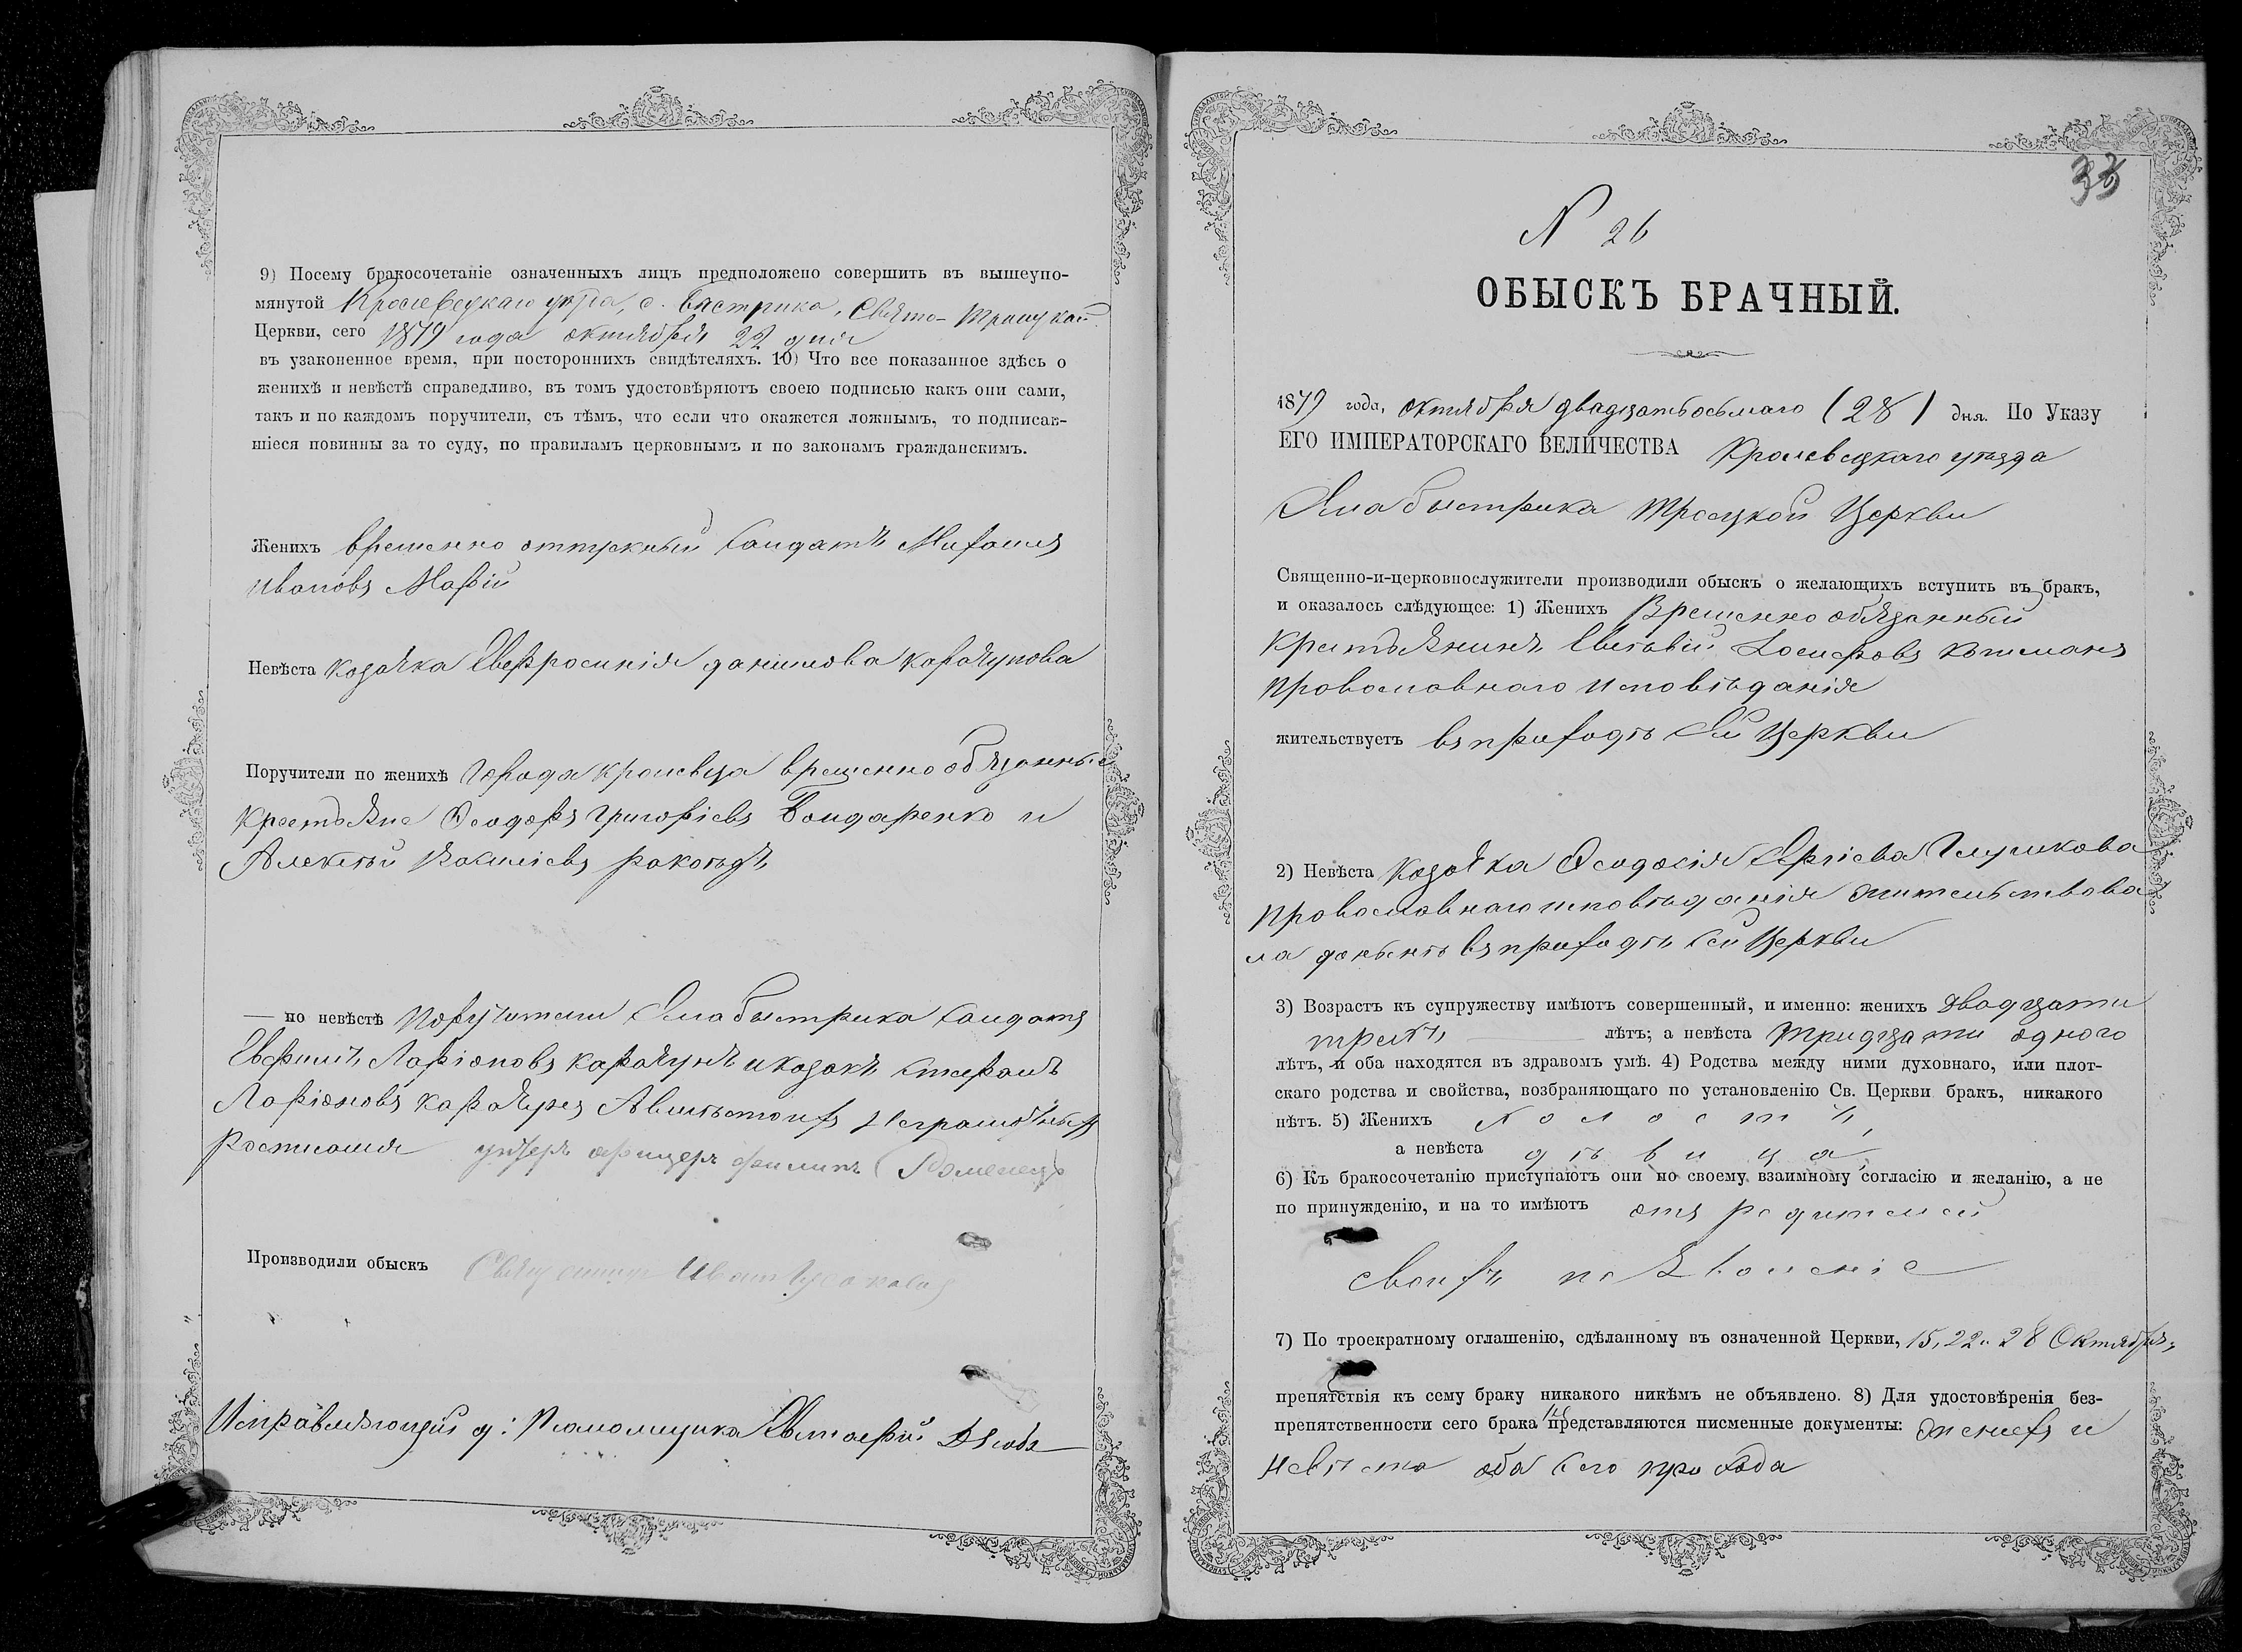 9) Посему бракосочетаніе означенныхъ лицъ предположено совершить въ вышеупо-
мянутой Кролевецкаго уѣзда, с. Бистрика, Свято-Троицкой
Церкви, сего 1879 года октября 22 дня
въ узаконенное время, при постороннихъ свидѣтеляхъ. 10) Что все показанное здѣсь о
женихѣ и невѣстѣ справедливо, въ томъ удостовѣряютъ своею подписью какъ они сами,
такъ и по каждомъ поручители, съ тѣмъ, что если что окажется ложнымъ, то подписав-
шіеся повинны за то суду, по правиламъ церковнымъ и по законамъ гражданскимъ.
Женихъ временно отпускный Солдатъ Михаилъ
Ивановъ Мафій
Невѣста козачка Евфросинія данилова Карачунова
Поручители по женихѣ Города Кролевца временно обязанные
Крестьяне Ѳеодоръ Григоріевъ Бондаренко и
Алексѣй Василіевъ
— по невѣстѣ Поручители Села быстрика Солдатъ
Евфимъ Ларіоновъ Карачунъ и козакъ Стефанъ
Ларіоновъ Карачунъ А вмѣсто ихъ Неграмотныхъ
Росписался унтеръ офицеръ Филипъ Роменецъ
Производили обыскъ Священникъ Иванъ
Исправляющій д: Псаломщика Евстафій
33
N 26
ОБЫСКЪ БРАЧНЫЙ.
1879 года, октября двадцатьосьмаго (28) дня. По Указу
ЕГО ИМПЕРАТОРСКАГО ВЕЛИЧЕСТВА Кролевецкаго уѣзда
Села быстрика Троецкой Церкви
Священно-и-церковнослужители производили обыскъ о желающихъ вступить въ бракъ,
и оказалось слѣдующее: 1) Женихъ Временно обязанный
Крестьянинъ Евсѣвій Іосифовъ
Провославнаго Исповѣданія
жительствуетъ въ приходѣ Сей Церкви
2) Невѣста Козачка Ѳеодосія Сергіева Глушкова
провославнаго исповѣданія жительствова
ла донынѣ въ приходѣ Сей Церкви
3) Возрастъ къ супружеству имѣютъ совершенный, и именно: женихъ двадцати
трехъ лѣтъ; а невѣста тридцати одного
лѣтъ, и оба находятся въ здравомъ умѣ. 4) Родства между ними духовнаго, или плот-
скаго родства и свойства, возбраняющаго по установленію Св. Церкви бракъ, никакого
нѣтъ. 5) Женихъ холостъ,
а невѣста дѣвица,
6) Къ бракосочетанію приступаютъ они по своему взаимному согласію и желанію, а не
по принужденію, и на то имѣютъ отъ родителей
своихъ позволеніе
7) По троекратному оглашенію, сдѣланному въ означенной Церкви, 15, 22 и 28 Октября,
препятствія къ сему браку никакого никѣмъ не объявлено. 8) Для удостовѣренія без-
препятственности сего брака представляются писменные документы: женихъ и
невѣста оба сего прихода